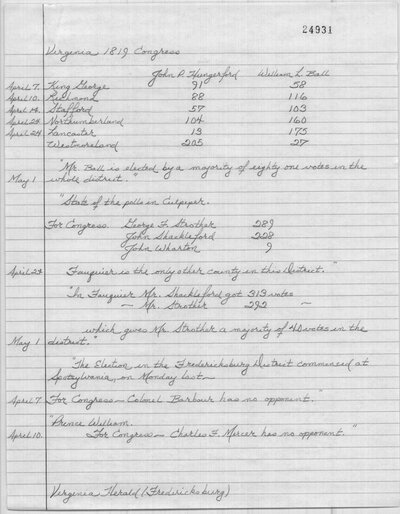 24931
Virginia 1819 Congress
John P. Hungerford William L. Ball
April 7. King George 91 58
April 10. Richmond 88 116
April 14. Stafford 57 103
April 24 Northumberland 104 160
April 24 Lancaster 13 175
Westmoreland 205 27
"Mr. Ball is elected by a majority of eighty one votes in the
May 1 whole district."
"State of the polls in Culpeper.
For Congress. George F. Strother 289
John Shackleford 228
John Wharton 9
April 24 Fauquier is the only other county in this District."
"In Fauquier Mr. Shackleford got 313 votes
— Mr. Strother 292 —
which gives Mr Strother a majority of 40 votes in the
May 1 district."
"The Election in the Fredericksburg District commenced at
Spotsylvania, on Monday last—
April 7 For Congress— Colonel Barbour has no opponent."
"Prince William.
April 10. For Congress— Charles F. Mercer has no opponent."
Virginia Herald (Fredericksburg)